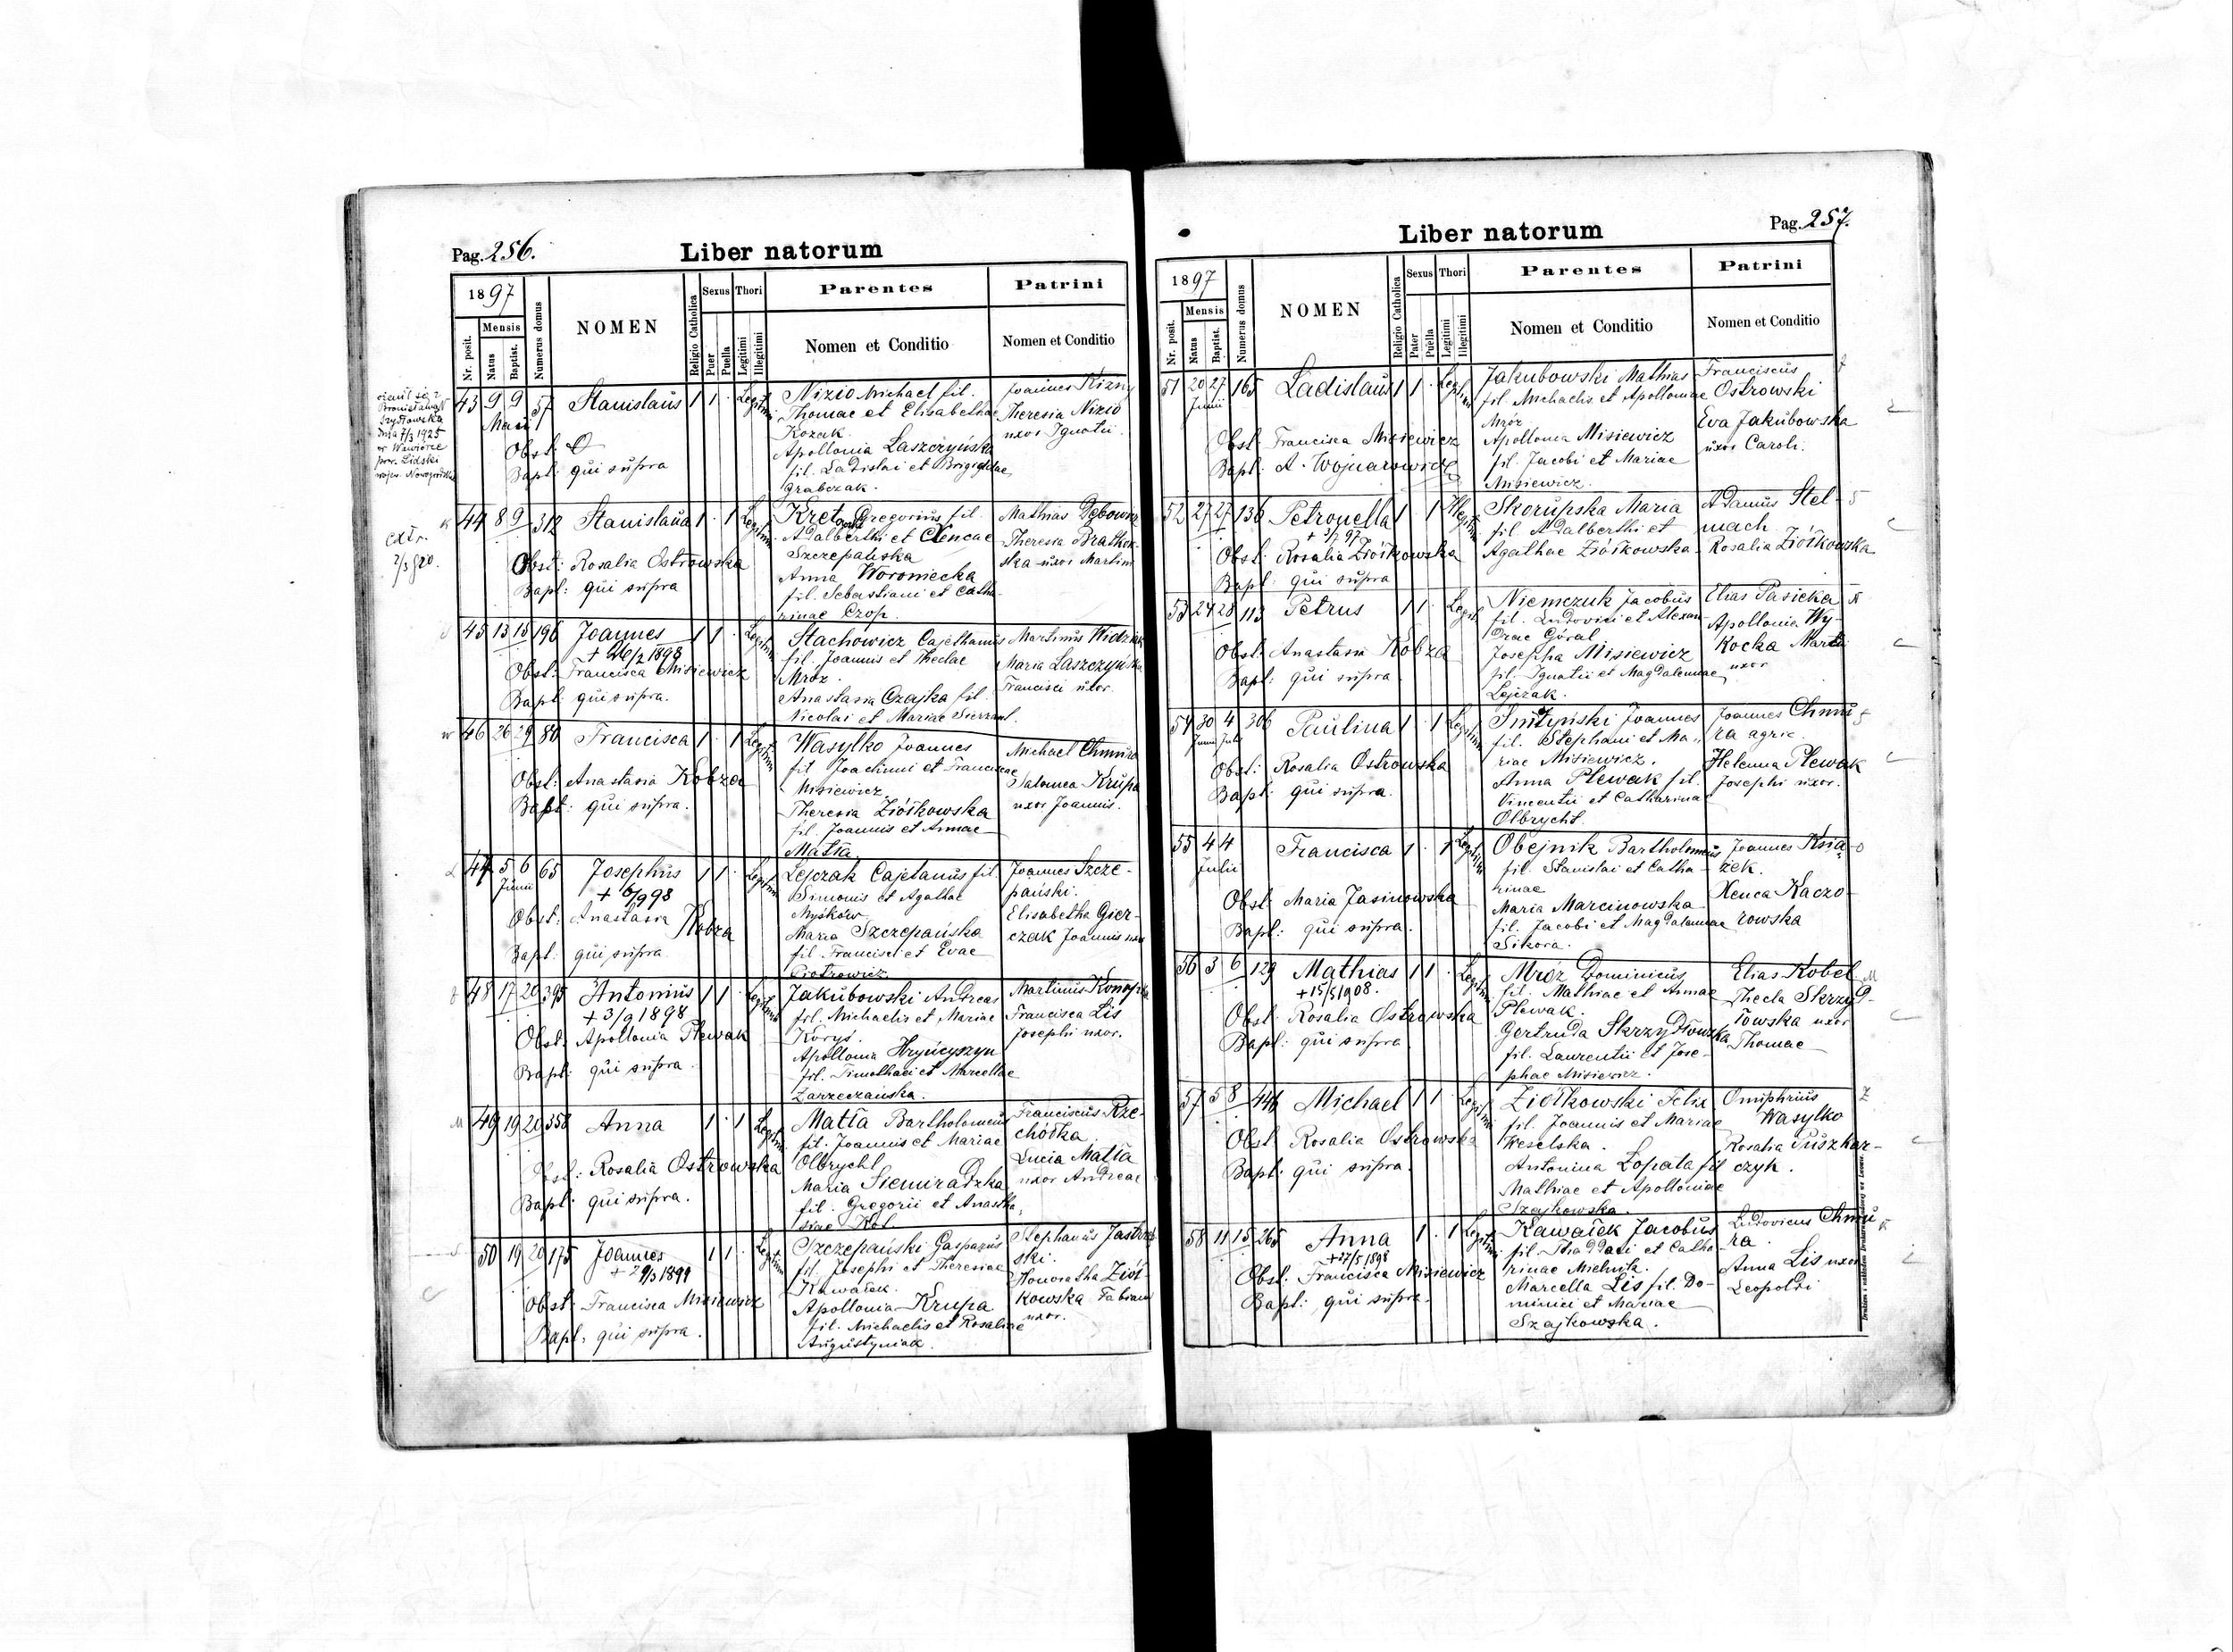 Pag. 256.
Liber natorum
1897
Nr. posit.
Mensis
Natus
Baptist.
Numerus domus
NOMEN
Religio Catholica
Sexus
Puer
Puella
Thori
Legitimi
Illegitimi
Parentes
Nomen et Conditio
Patrini
Nomen et Conditio
Bronisławą
dnia 7/3 1925
w Wawiórce
pow. Lidski
43 9 9 57 Stanislaus 1 1 · Legitimi
Maii
Obst:
Bapt: qui supra
Nizio Michael fil.
Thomae et Elisabethae
Kozak.
Apollonia Laszczyńska
fil. Ladislai et Brigiddae
Grabczak.
Joannes Kizny
Theresia Nizio
uxor Ignatii.
extr.
44 8 9 312 Stanislaua 1 · 1 Legitimi
Obst: Rosalia Ostrowska
Bapt: qui supra
Kret Gregorius fil.
Adalberthi et Xencae
Szczepańska
Anna Woroniecka
fil. Sebastiani et Catha-
rinae Czop.
Mathias
Theresia Bratkow-
ska uxor Martini
45 13 15 196 Joannes 1 1 · Legitimi
+ 26/2 1898
Obst: Francisca Misiewicz
Bapt: qui supra.
Stachowicz Cajethanus
fil. Joannis et Theclae
Mróz.
Anastasia Czajka fil.
Nicolai et Mariae Sierzant.
Martinus Widziak
Maria Laszczyńska
Francisci uxor.
46 26 29 80 Francisca 1 · 1 Legitimi
Obst: Anastasia Kobza
Bapt: qui supra.
Wasylko Joannes
fil Joachimi et Franciscae
Misiewicz.
Theresia Ziółkowska
fil. Joannis et Annae
Matła.
Michael Chmura
Salomea Krupa
uxor Joannis.
47 5 6 65 Josephus 1 1 · Legitimi
Junii
+ 6/9 98
Obst: Anastasia Kobza
Bapt: qui supra
Lejczak Cajetanus fil.
Simonis et Agathae
Myśków
Maria Szczepańska
fil Francisci et Evae
Piotrowicz
Joannes Szcze-
pański.
Elisabetha Gier-
czak Joannis uxor
48 17 20 395 Antonius 1 1 · Legitimi
+ 3/9 1898
Obst: Apollonia Plewak
Bapt: qui supra
Jakubowski Andreas
fil. Michaelis et Mariae
Koryś.
Apollonia Hryńcyszyn
fil. Timothaei et Marcellae
Zarzeczańska.
Martinus Konopka
Francisca Lis
Josephi uxor.
49 19 20 358 Anna 1 · 1 Legitimi
Obst: Rosalia Ostrowska
Bapt: qui supra.
Matła Bartholomeus
fil. Joannis et Mariae
Olbrycht
Maria Siemiradzka
fil. Gregorii et Anasta-
siae Kot.
Franciscus Rze-
chółka
Lucia Matła
uxor Andreae
50 19 20 175 Joannes 1 1 · Legitimi
+ 29/3 1899
Obst: Francisca Misiewicz
Bapt: qui supra.
Szczepański Gasparus
fil. Josephi et Theresiae
Kawałek.
Apollonia Krupa
fil. Michaelis et Rosaliae
Augustyniak.
Stephanus Jastrzęb
ski.
Honoratha Ziół-
kowska Fabiani
uxor.
Pag. 257.
Liber natorum
1897
Nr. posit.
Mensis
Natus
Baptist.
Numerus domus
NOMEN
Religio Catholica
Sexus
Pater
Puella
Thori
Legitimi
Illegitimi
Parentes
Nomen et Conditio
Patrini
Nomen et Conditio
51 20 27 165 Ladislaus 1 1 · Legitimi
Junii
Obst: Francisca Misiewicz
Bapt: A. Wojnarowicz
Jakubowski Mathias
fil. Michaelis et Apolloniae
Mróz
Apollonia Misiewicz
fil. Jacobi et Mariae
Misiewicz.
Franciscus
Ostrowski
Eva Jakubowska
uxor Caroli.
52 27 27 136 Petronella 1 · 1 Illegitimi
+ 3/7 97
Obst: Rosalia Ziółkowska
Bapt: qui supra
Skorupska Maria
fil. Adalberthi et
Agathae Ziółkowska
Adamus Stel-
mach
Rosalia Ziółkowska
53 24 28 113 Petrus 1 1 · Legit.
Obst: Anastasia Kobza
Bapt: qui supra
Niemczuk Jacobus
fil. Ludovici et Alexan-
drae Góral
Josepha Misiewicz
fil. Ignatii et Magdalennae
Lejczak.
Elias Pasieka
Apollonia Wy-
kocka Martini
uxor
54 30 4 306 Paulina 1 · 1 Legitimi
Junii Julii
Obst: Rosalia Ostrowska
Bapt: qui supra.
Smłyński Joannes
fil. Stephani et Ma-
riae Misiewicz.
Anna Plewak fil.
Vincentii et Catharinae
Olbrycht.
Joannes Chmu-
ra agric.
Helenna Plewak
Josephi uxor.
55 4 4 Francisca 1 · 1 Legitimi
Julii
Obst: Maria Jasinowska
Bapt: qui supra.
Obejnik Bartholomeus
fil. Stanislai et Catha-
rinae
Maria Marcinowska
fil. Jacobi et Magdalennae
Sikora.
Joannes Ksią-
żek.
Xenca Kaczo-
rowska
56 3 6 129 Mathias 1 1 · Legitimi
+ 15/5 1908.
Obst: Rosalia Ostrowska
Bapt: qui supra
Mróz Dominicus
fil. Mathiae et Annae
Plewak.
Gertruda Skrzydłowska
fil. Laurentii et Jose-
phae Misiewicz.
Elias Kobel
Thecla Skrzyd-
łowska uxor
Thomae
57 5 8 446 Michael 1 1 · Legitimi
Obst: Rosalia Ostrowska
Bapt: qui supra.
Ziółkowski Felix
fil. Joannis et Mariae
Weselska.
Antonina Łopata fil
Mathiae et Apolloniae
Szajkowska.
Omiphrius
Wasylko
Rosalia Puszkar-
czyk.
58 11 15 265 Anna 1 · 1 Legitimi
+ 27/5 1898
Obst: Francisca Misiewicz
Bapt: qui supra.
Kawałek Jacobus
fil. Thaddaei et Catha-
rinae Mielnita.
Marcella Lis fil. Do-
minici et Mariae
Szajkowska.
Ludovicus Chmu
ra.
Anna Lis uxor
Leopoldi